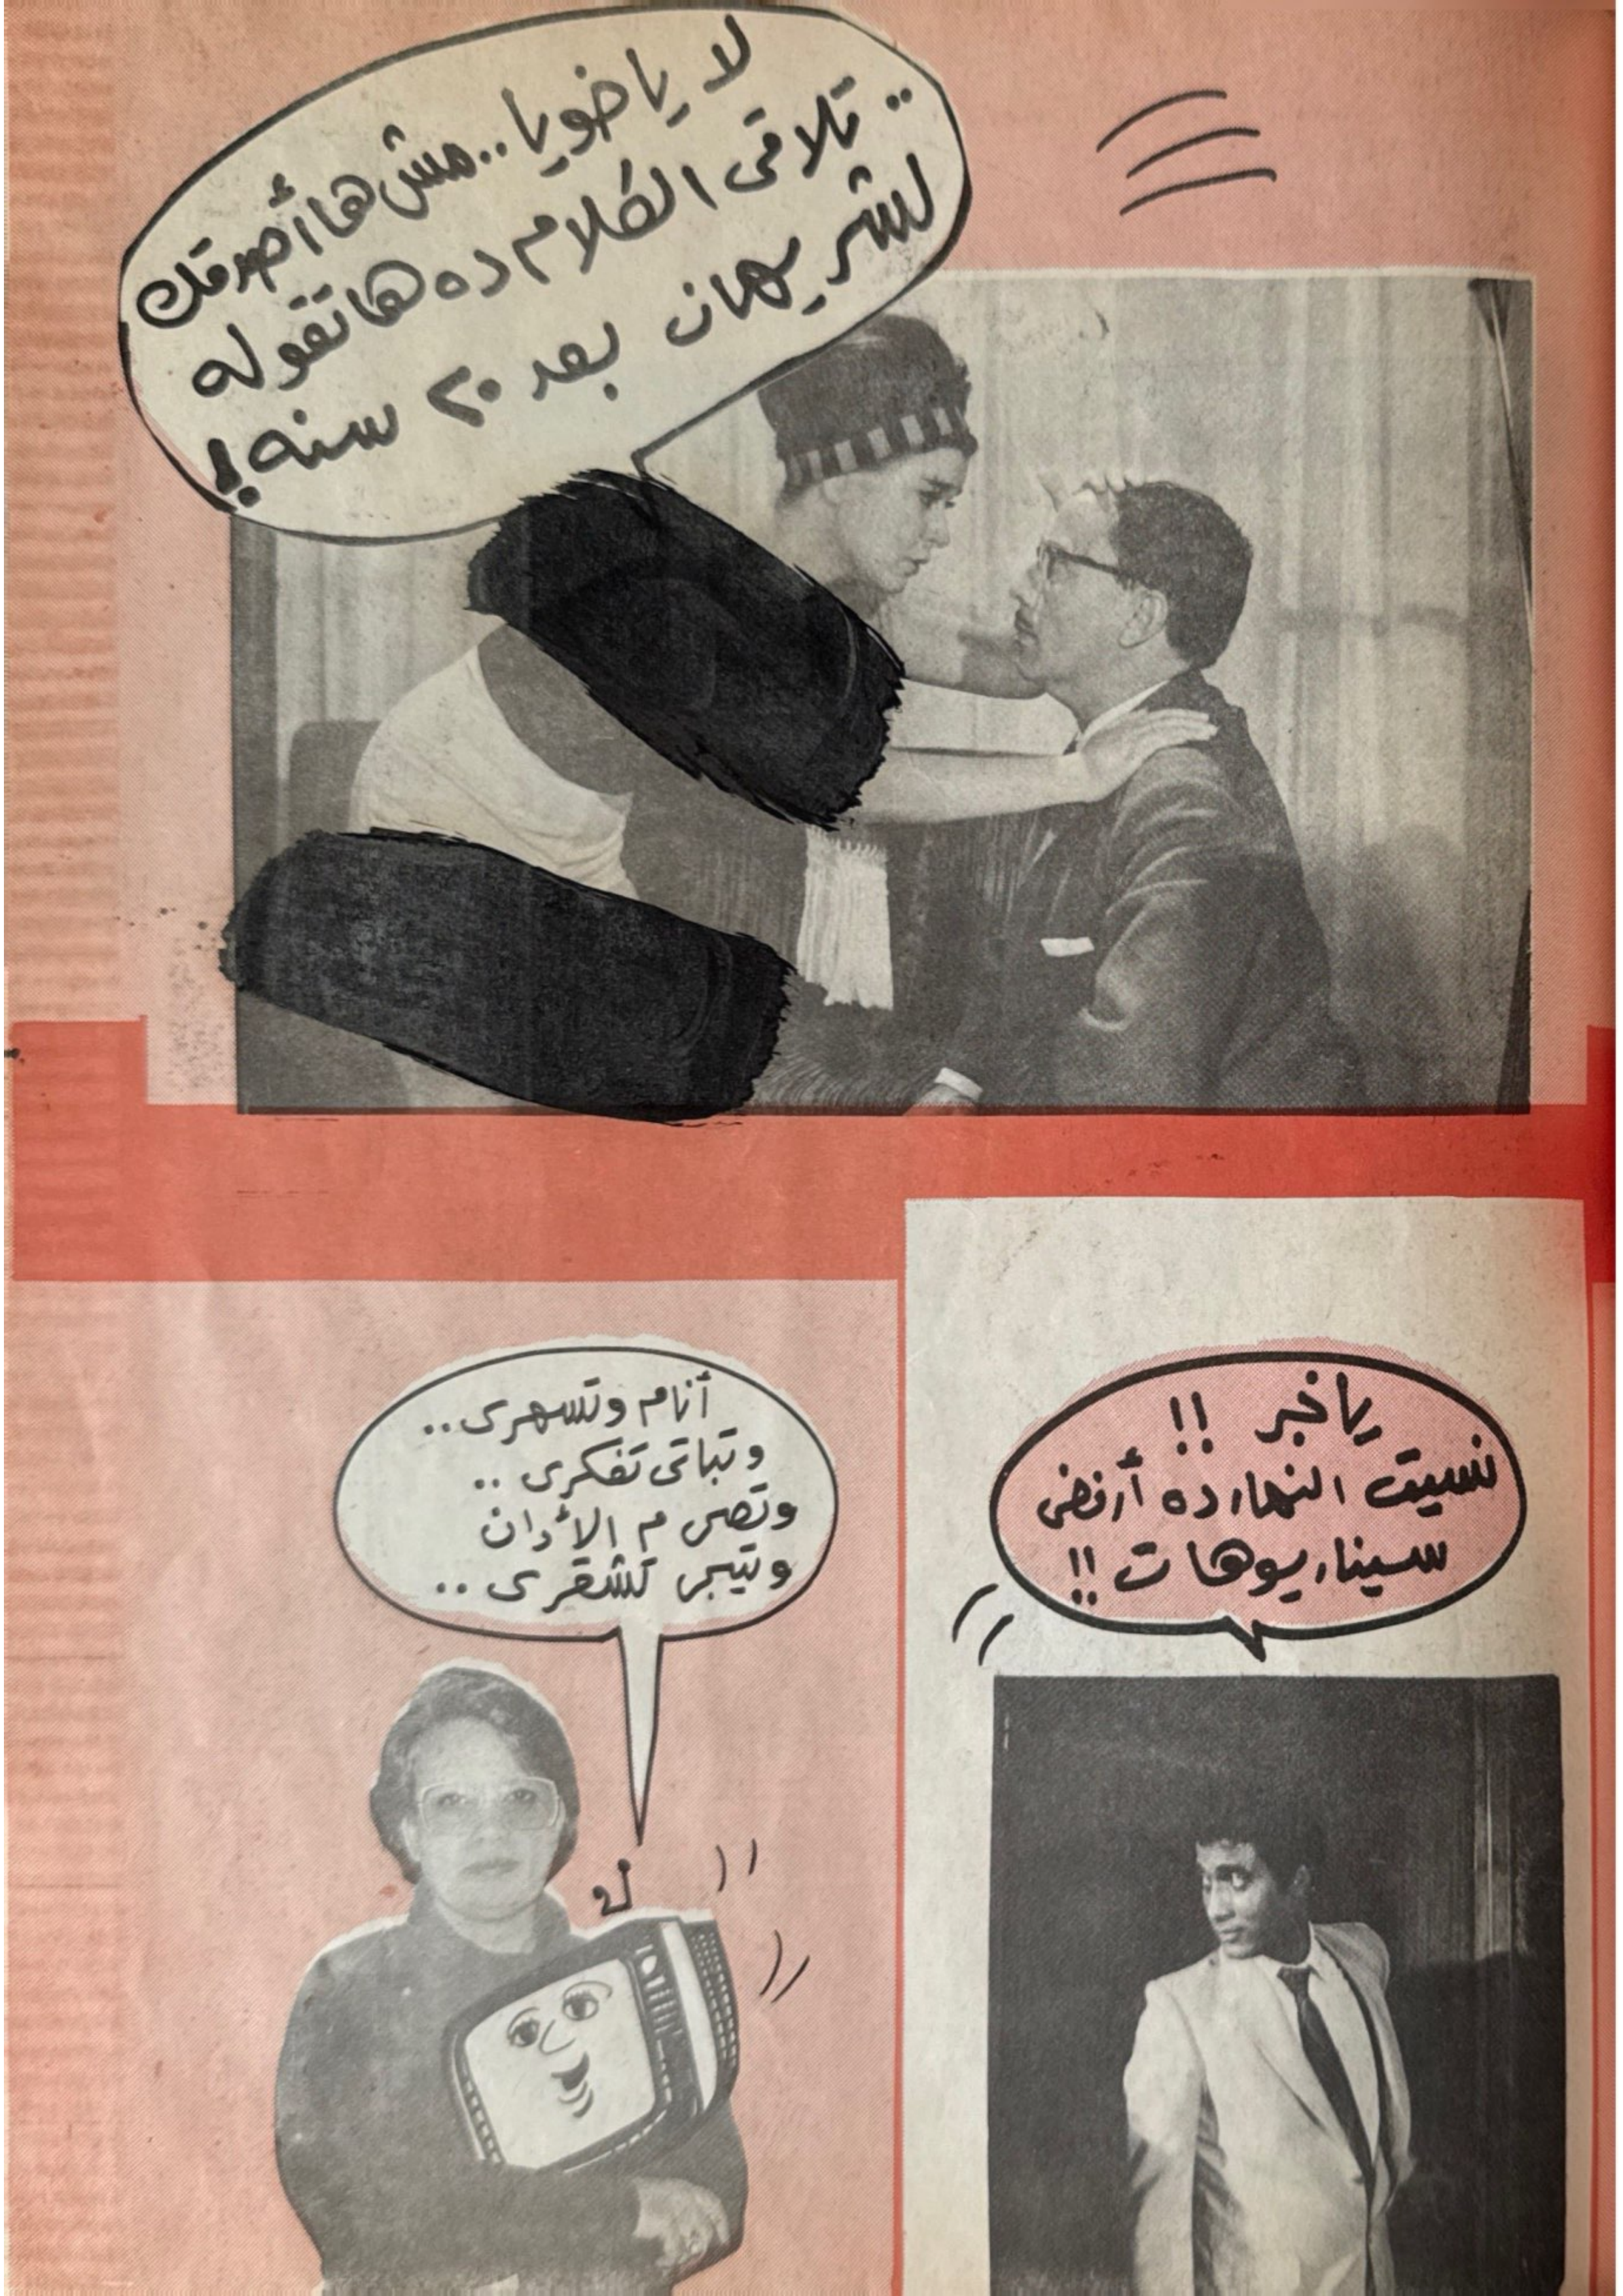 لا ياخويا.. مش هاأصدقك
.. تلاقى الكلام ده هاتقوله
لشريهان بعد ٢٠ سنه!
ياخبر !!
نسيت النهارده أرفض
سيناريوهات !!
أنام وتسهرى..
وتباتى تفكرى ..
وتصحى م الأدان
وتيجى تشقرى ..